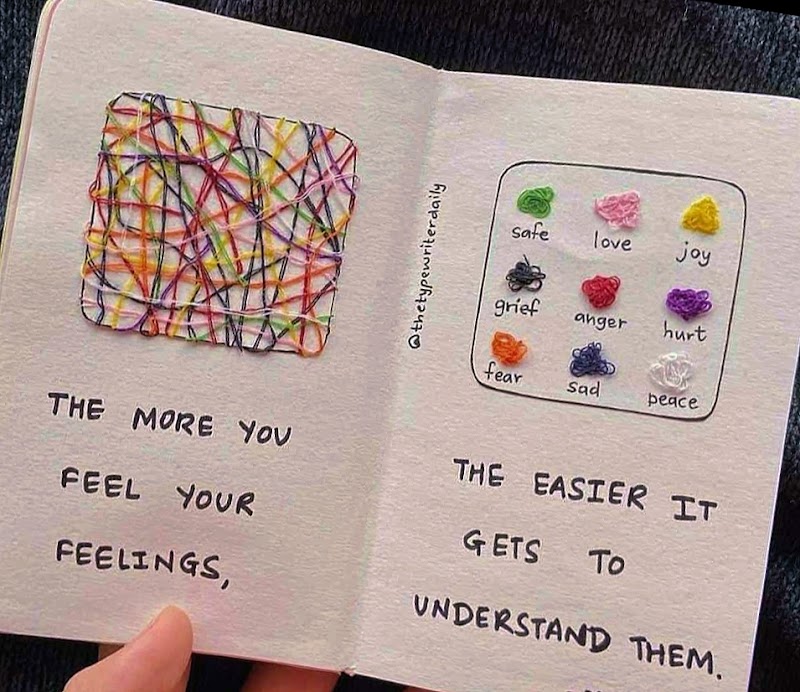 THE MORE YOU
FEEL YOUR
FEELINGS,
@thetypewriterdaily
safe love joy
grief anger hurt
fear sad peace
THE EASIER IT
GETS TO
UNDERSTAND THEM.